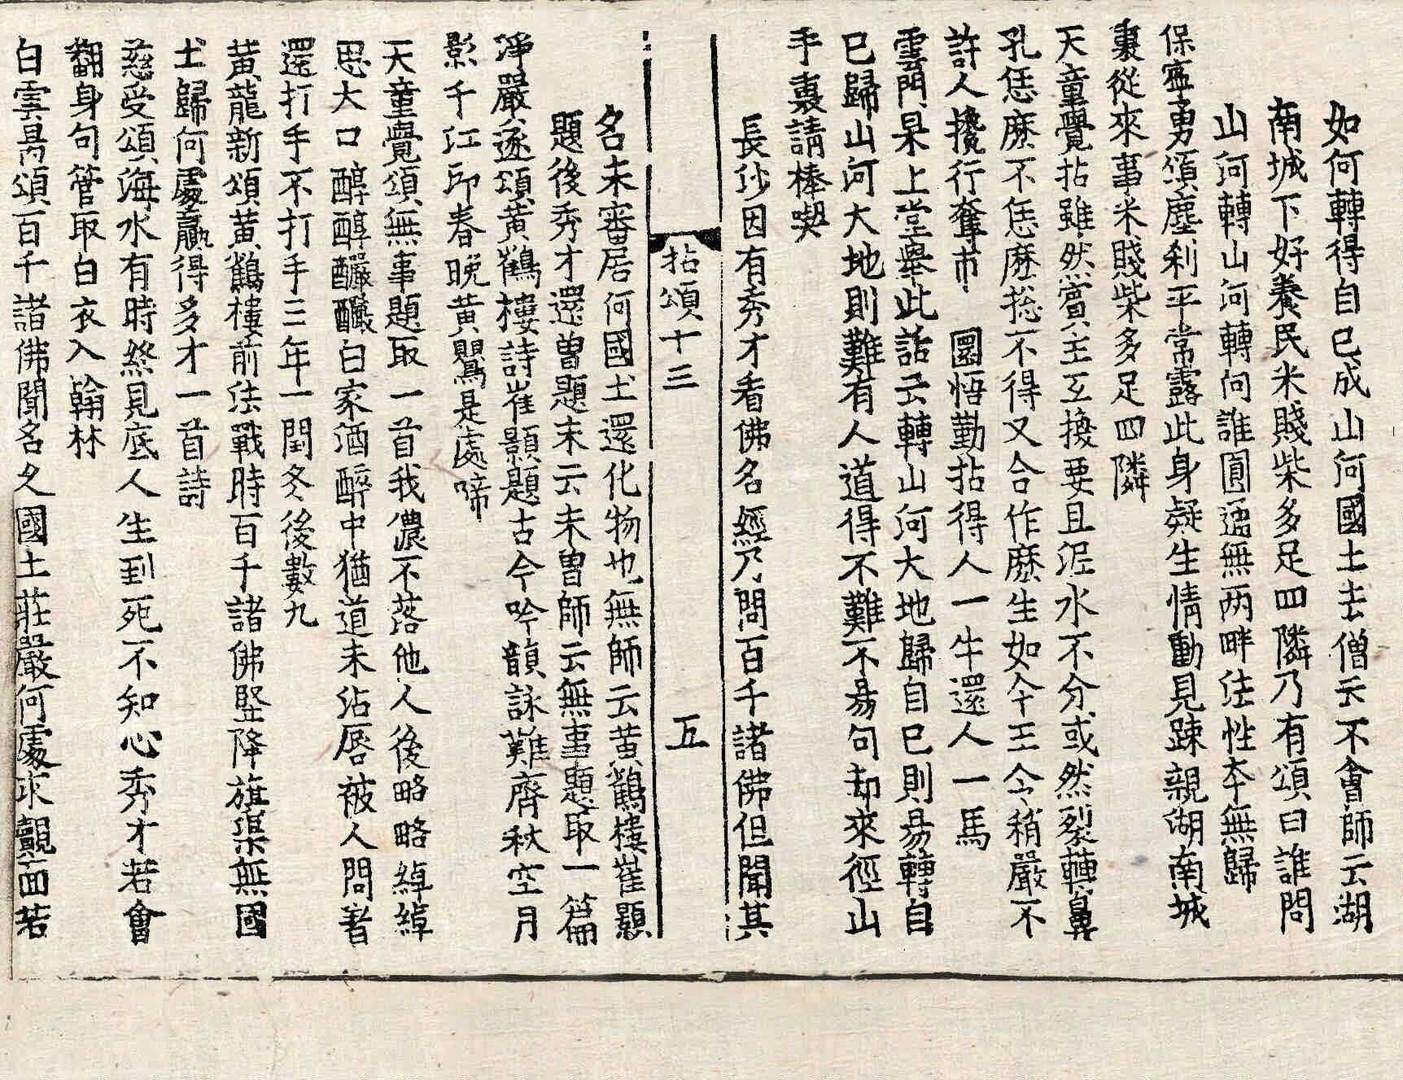 如何轉得自己成山河國土去僧云不會師云湖
南城下好養民米賤柴多足四隣乃有頌曰誰問
山河轉山河轉向誰圓通無两畔法性本無歸
保寧勇頌塵刹平常露此身疑生情動見踈親湖南城
裏從來事米賤柴多足四隣
天童覺拈雖然賔主互換要且泥水不分或然裂轉鼻
孔恁麽不恁麽揔不得又合作麽生如今王令稍嚴不
許人攙行奪市 圜悟勤拈得人一牛還人一馬
雲門杲上堂舉此話云轉山河大地歸自己則易轉自
己歸山河大地則難有人道得不難不易句却來徑山
手裏請棒喫
長沙因有秀才看佛名經乃問百千諸佛但聞其
拈頌十三 五
名未審居何國土還化物也無師云黄鶴樓崔顥
題後秀才還曽題未云未曽師云無事題取一篇
淨嚴遂頌黄鶴樓詩崔顥題古今吟韻詠難齊秋空月
影千江印春晚黄鸎是處啼
天童覺頌無事題取一首我儂不落他人後略略綽綽
思大口醇醇釅釅白家酒醉中猶道未沾唇被人問著
還打手不打手三年一閏冬後數九
黃龍新頌黃鶴樓前法戰時百千諸佛竪降旗渠無國
土歸何處贏得多才一首詩
慈受頌海水有時終見底人生到死不知心秀才若會
翻身句管取白衣入翰林
白雲昺頌百千諸佛聞名久國土莊嚴何處求覿面若